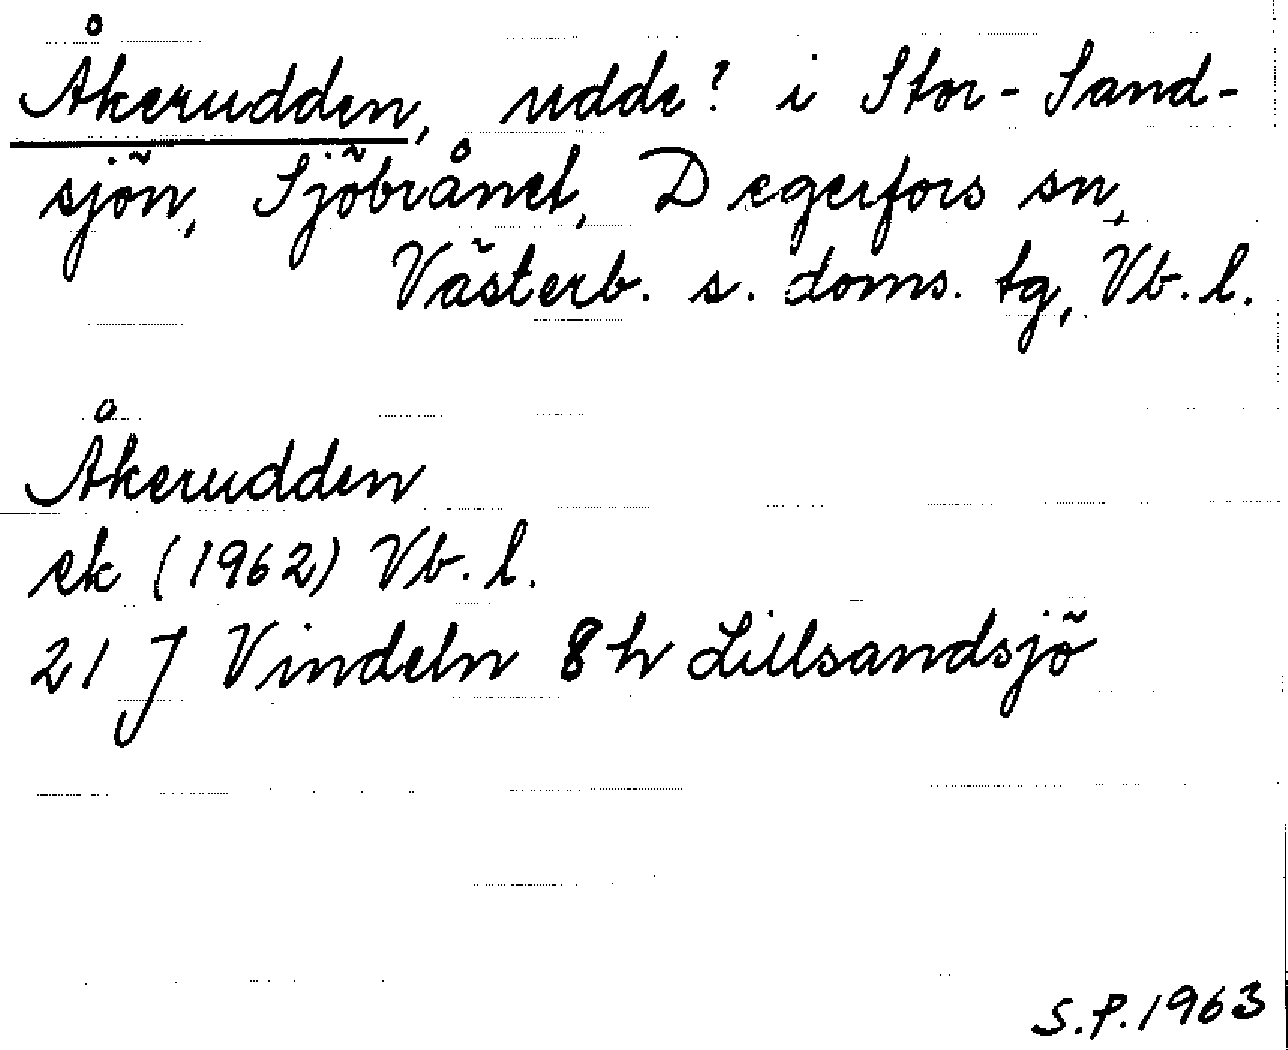 Åkerudden, udde? i Stor-Sand-
sjön, Sjöbrånet, Degerfors sn,
Västerb. s. doms. tg, Vb. l.
Åkerudden
ek (1962) Vb. l.
21 J Vindeln 8 h Lillsandsjö
S.P. 1963